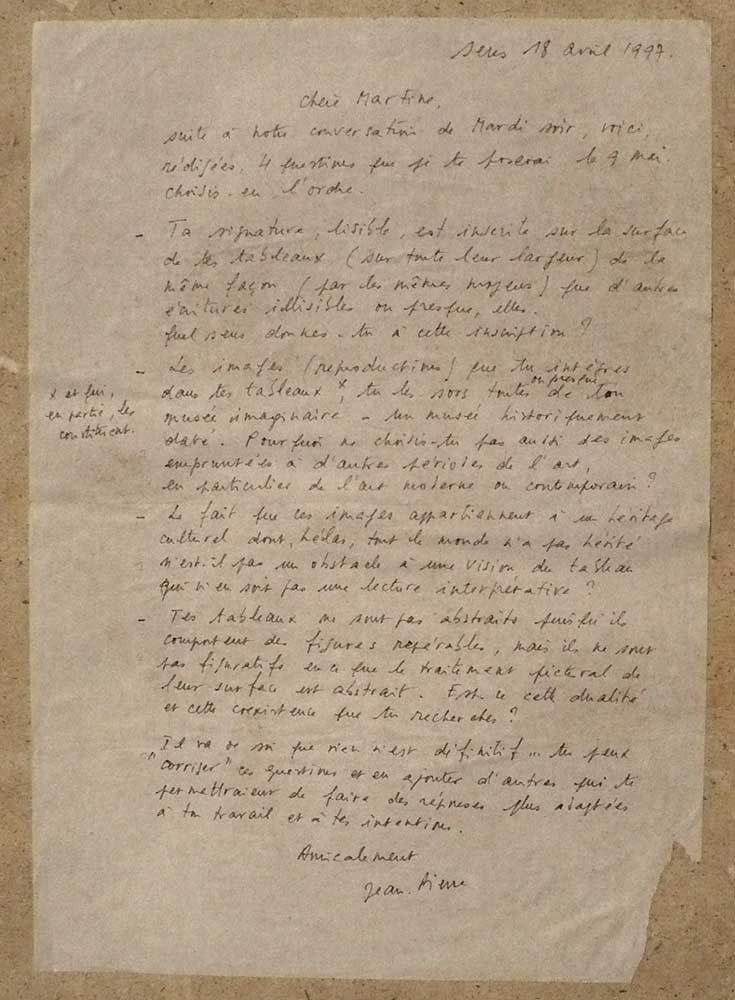 Sens 18 avril 1997.
Chère Martine,
suite à notre conversation de Mardi soir, voici,
rédigées, 4 questions que je te poserai le 9 mai.
choisis-en l'ordre.
- Ta signature, lisible, est inscrite sur la surface
de tes tableaux (sur toute leur largeur) de la
même façon (par les mêmes moyens) que d'autres
écritures illisibles ou presque, elles.
Quel sens donnes-tu à cette inscription ?
- Les images (reproductions) que tu intègres
dans tes tableaux x, tu les sors toutes ou presque de ton
x et qui,
en partie, les
constituent.
musée imaginaire - un musée historiquement
daté. Pourquoi ne choisis-tu pas aussi des images
empruntées à d'autres périodes de l'art,
en particulier de l'art moderne ou contemporain ?
- Le fait que ces images appartiennent à un héritage
culturel dont, hélas, tout le monde n'a pas hérité
n'est-il pas un obstacle à une vision du tableau
qui n'en soit pas une lecture interprétative ?
- Tes tableaux ne sont pas abstraits puisqu'ils
comportent des figures repérables, mais ils ne sont
pas figuratifs en ce que le traitement pictural de
leur surface est abstrait. Est-ce cette dualité
et cette coexistence que tu recherches ?
Il va de soi que rien n'est définitif... tu peux
"corriger" ces questions et en ajouter d'autres qui te
permettraient de faire des réponses plus adaptées
à ton travail et à tes intentions.
Amicalement
Jean-Pierre